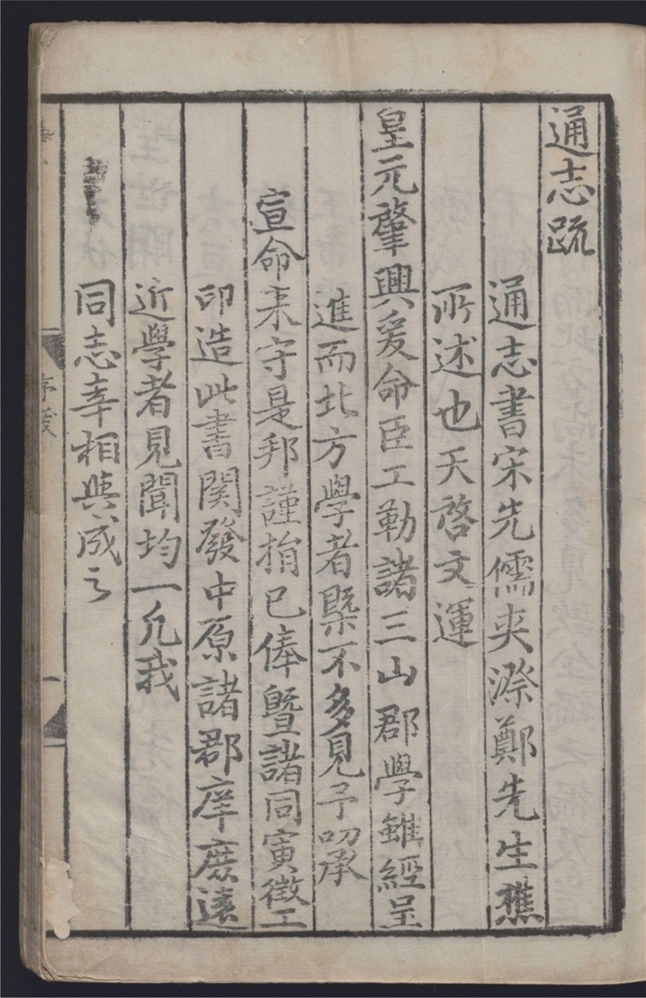 通志疏
通志書宋先儒夾漈鄭先生樵
所述也天啓文運
皇元肇興爰命臣工勒諸三山郡學雖經呈
進而北方學者槩不多見予叨承
宣命來守是邦謹捐已俸暨諸同寅徵工
印造此書関發中原諸郡庠庶遠
近學者見聞均一凢我
同志幸相與成之